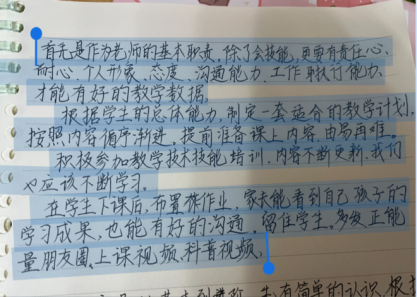 首先是作为老师的基本职责,除了会技能,更要有责任心、
耐心、个人形象、态度、沟通能力、工作执行能力、
才能有好的教学数据。
根据学生的总体能力,制定一套适合的教学计划,
按照内容循序渐进,提前准备课上内容,由易再难。
积极参加教学技术技能培训,内容不断更新,我们
也应该不断学习。
在学生下课后,布置珠作业,家长能看到自己孩子的
学习成果,也能有好的沟通,留住学生。多发正能
量朋友圈,上课视频、科普视频、
先有简单的认识